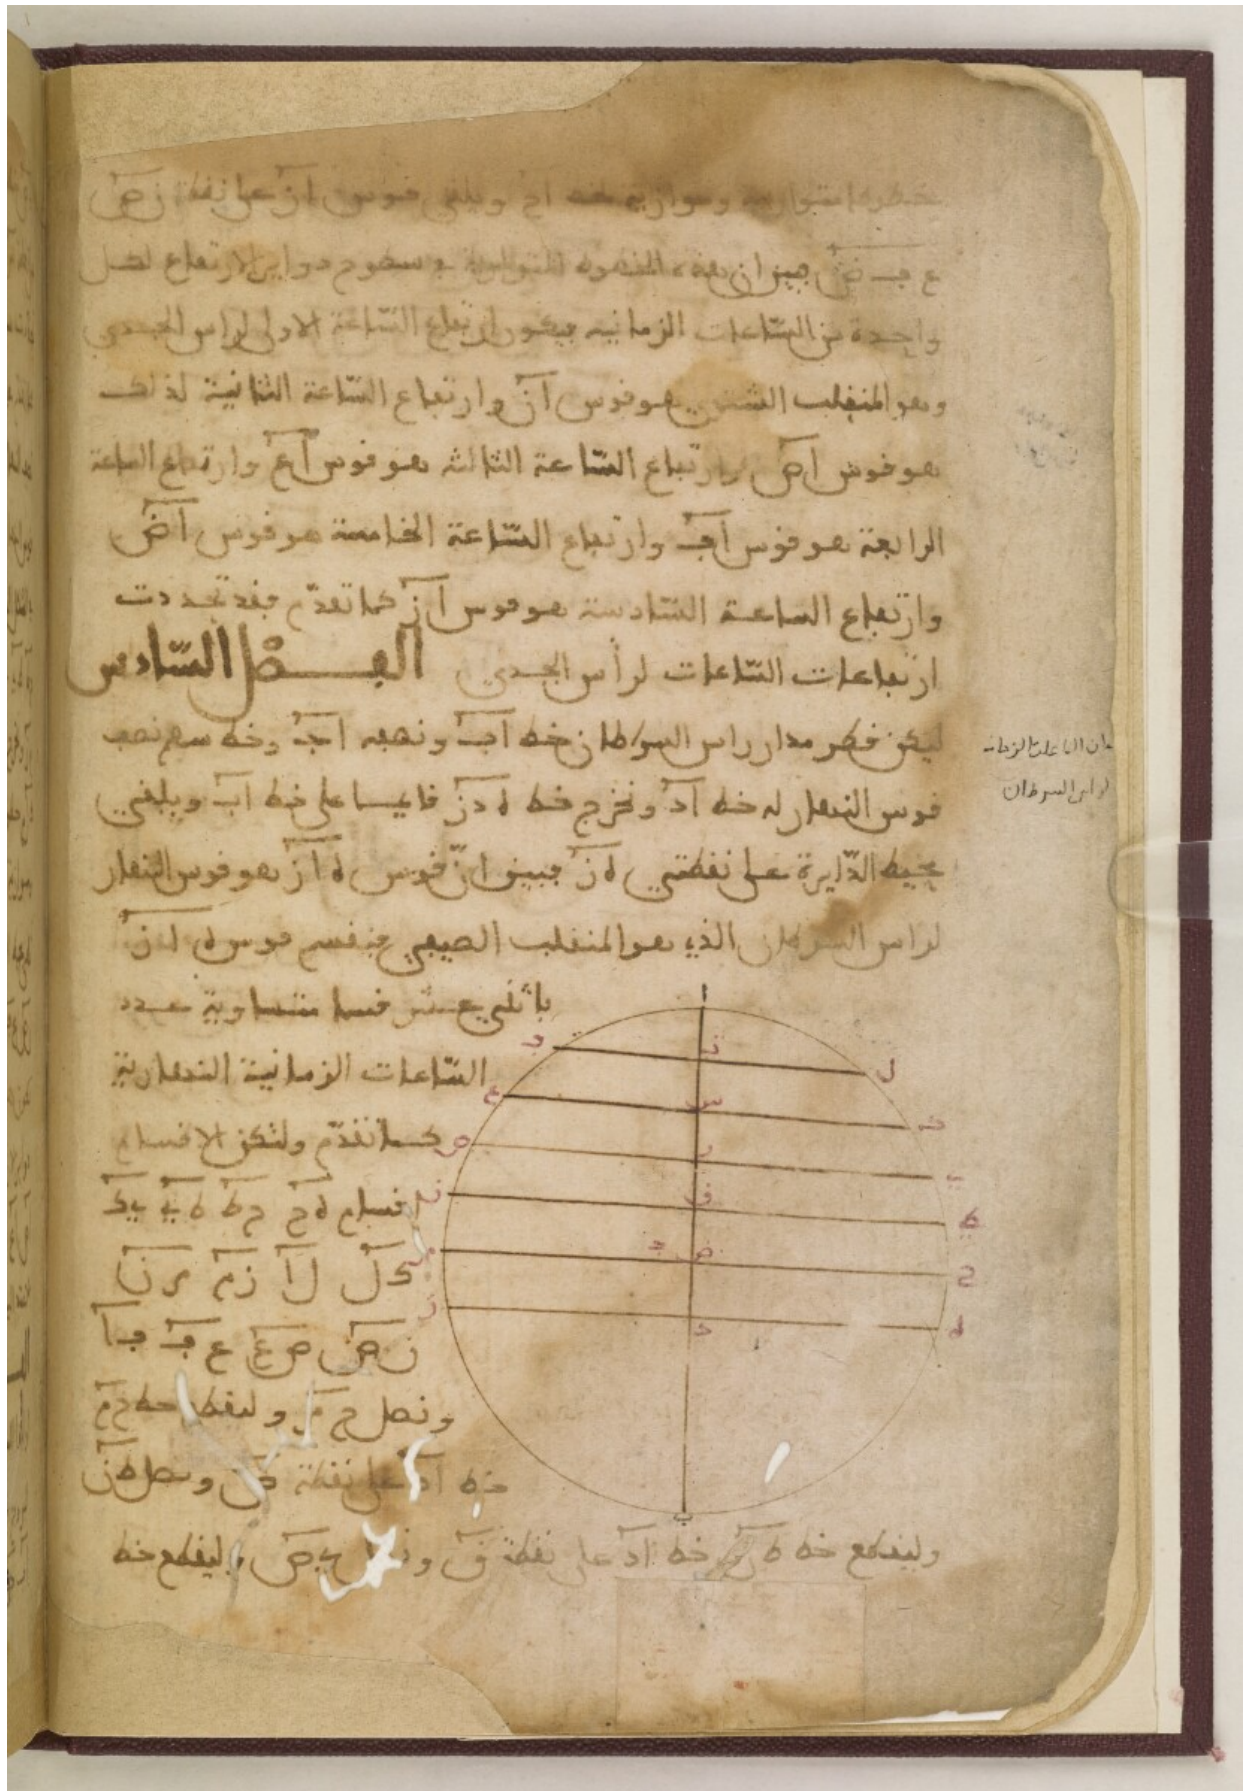 خطوط متوازية وموازية لخط اح ويلقى قوس ان على نقط ن ص
ع ف ض فبين ان هذه الخطوط المتوازية في سطوح دواير الارتفاع لكل
واحدة من السّاعات الزمانية فيكون ارتفاع السّاعة الاولى لراس الجدي
وهو المنقلب الشتوي هو قوس ان وارتفاع السّاعة الثانية لذلك
هو قوس اص وارتفاع السّاعة الثالثه هو قوس اع وارتفاع الساعة
الرابعة هو قوس اف وارتفاع السّاعة الخامسة هو قوس اض
وارتفاع الساعة السّادسة هو قوس ان كما تقدّم فقد تحددت
ارتفاعات السّاعات لرأس الجدي الفصل السّادس
ليكن قطر مدار راس السرطان خط اب ونصفه اج وخط سهم نصف
قوس النهار له خط اد ونخرج خط ه د ز قايما على خط اب ويلقي
محيط الدّايرة على نقطتي ه ز فبين انّ قوس ه ا ز هو قوس النهار
لراس السرطان الذي هو المنقلب الصيفي فنقسم قوس ه ا ز
باثني عشر قسما متساوية عدد
السّاعات الزمانية النهارية
كما تقدّم ولتكن الاقسام
اقسام ه ح ح ط ط ي ي ك
ك ل ل ا ز م م ن
ن ص ص ع ع ف ف ا
ونصل ح م وليقطع خط ح م
خط اد على نقطة ض ونصل ط ن
وليقطع خط ط ن خط اد على نقطة ق ونصل ي ص وليقطع خط
الساعات الزمانية
لراس السرطان
ا
ف
ل
ع
س
ك
ص
ر
ي
ن
ق
ط
م
ج
ض
ح
ز
د
ه
ب